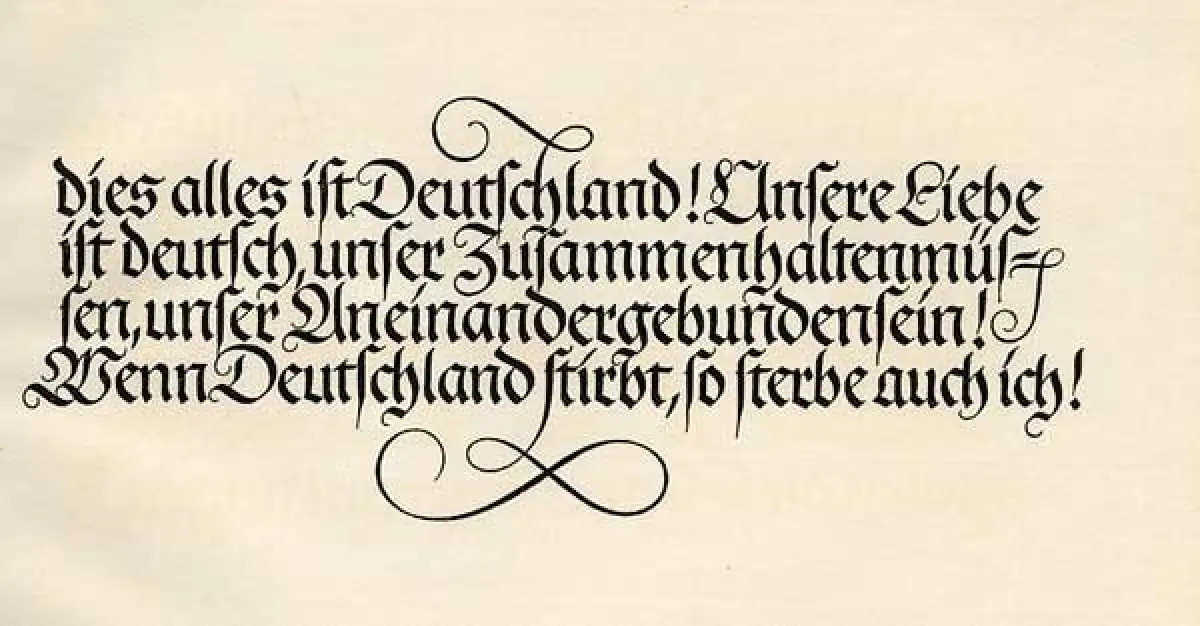 dies alles iſt Deutſchland! Unſere Liebe
iſt deutſch, unſer Zuſammenhaltenmüſ⸗
ſen, unſer Aneinandergebundenſein!
Wenn Deutſchland ſtirbt, ſo ſterbe auch ich!